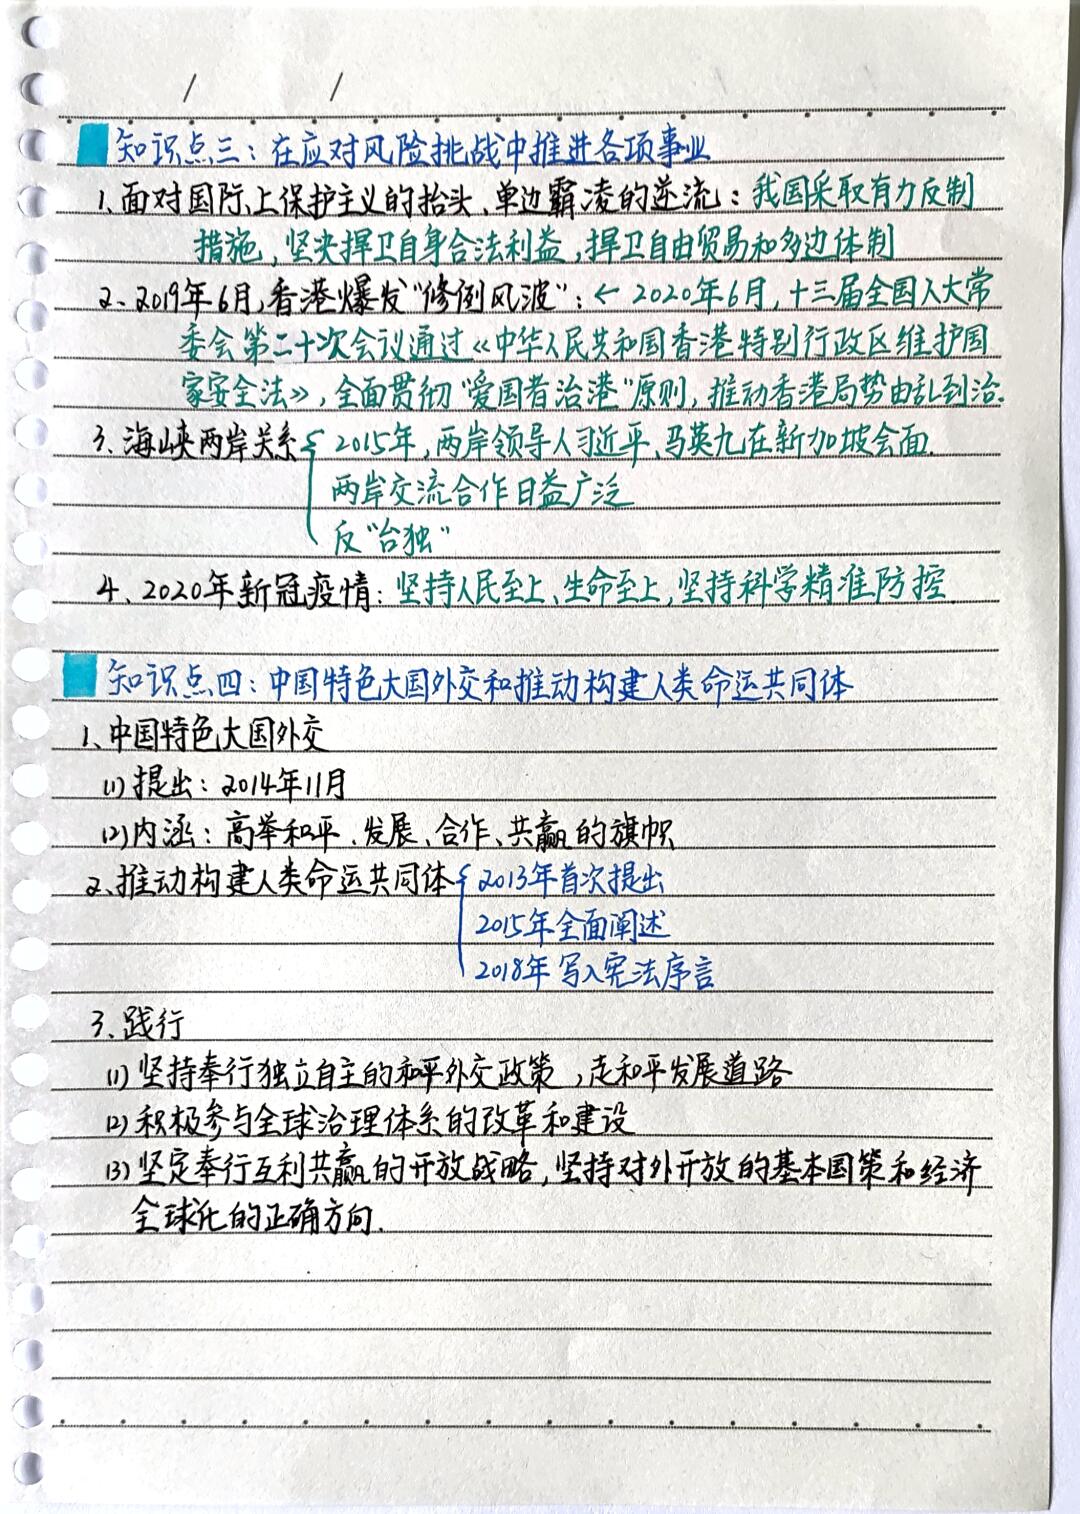 / /
知识点三：在应对风险挑战中推进各项事业
1、面对国际上保护主义的抬头、单边霸凌的逆流：我国采取有力反制
措施，坚决捍卫自身合法利益，捍卫自由贸易和多边体制
2、2019年6月，香港爆发“修例风波”：← 2020年6月，十三届全国人大常
委会第二十次会议通过《中华人民共和国香港特别行政区维护国
家安全法》，全面贯彻“爱国者治港”原则，推动香港局势由乱到治.
3、海峡两岸关系{ 2015年，两岸领导人习近平、马英九在新加坡会面.
两岸交流合作日益广泛
反“台独”
4、2020年新冠疫情：坚持人民至上、生命至上，坚持科学精准防控
知识点四：中国特色大国外交和推动构建人类命运共同体
1、中国特色大国外交
(1)提出：2014年11月
(2)内涵：高举和平、发展、合作、共赢的旗帜
2、推动构建人类命运共同体{ 2013年首次提出
2015年全面阐述
2018年写入宪法序言
3、践行
(1)坚持奉行独立自主的和平外交政策，走和平发展道路
(2)积极参与全球治理体系的改革和建设
(3)坚定奉行互利共赢的开放战略，坚持对外开放的基本国策和经济
全球化的正确方向.